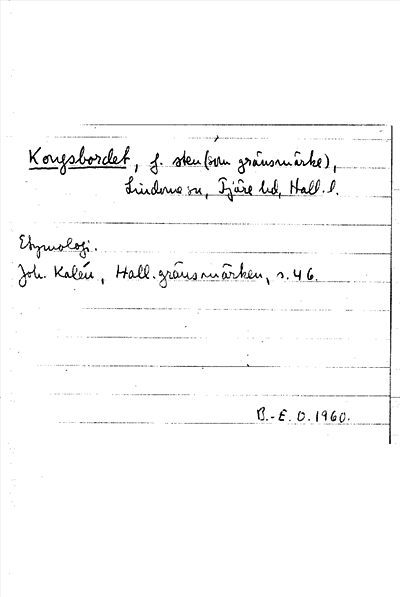 Kongsbordet, f. sten (som gränsmärke),
Lindome sn, Fjäre hd, Hall. l.
Etymologi.
Joh. Kalén, Hall. gränsmärken, s. 46.
B.-E. O. 1960.